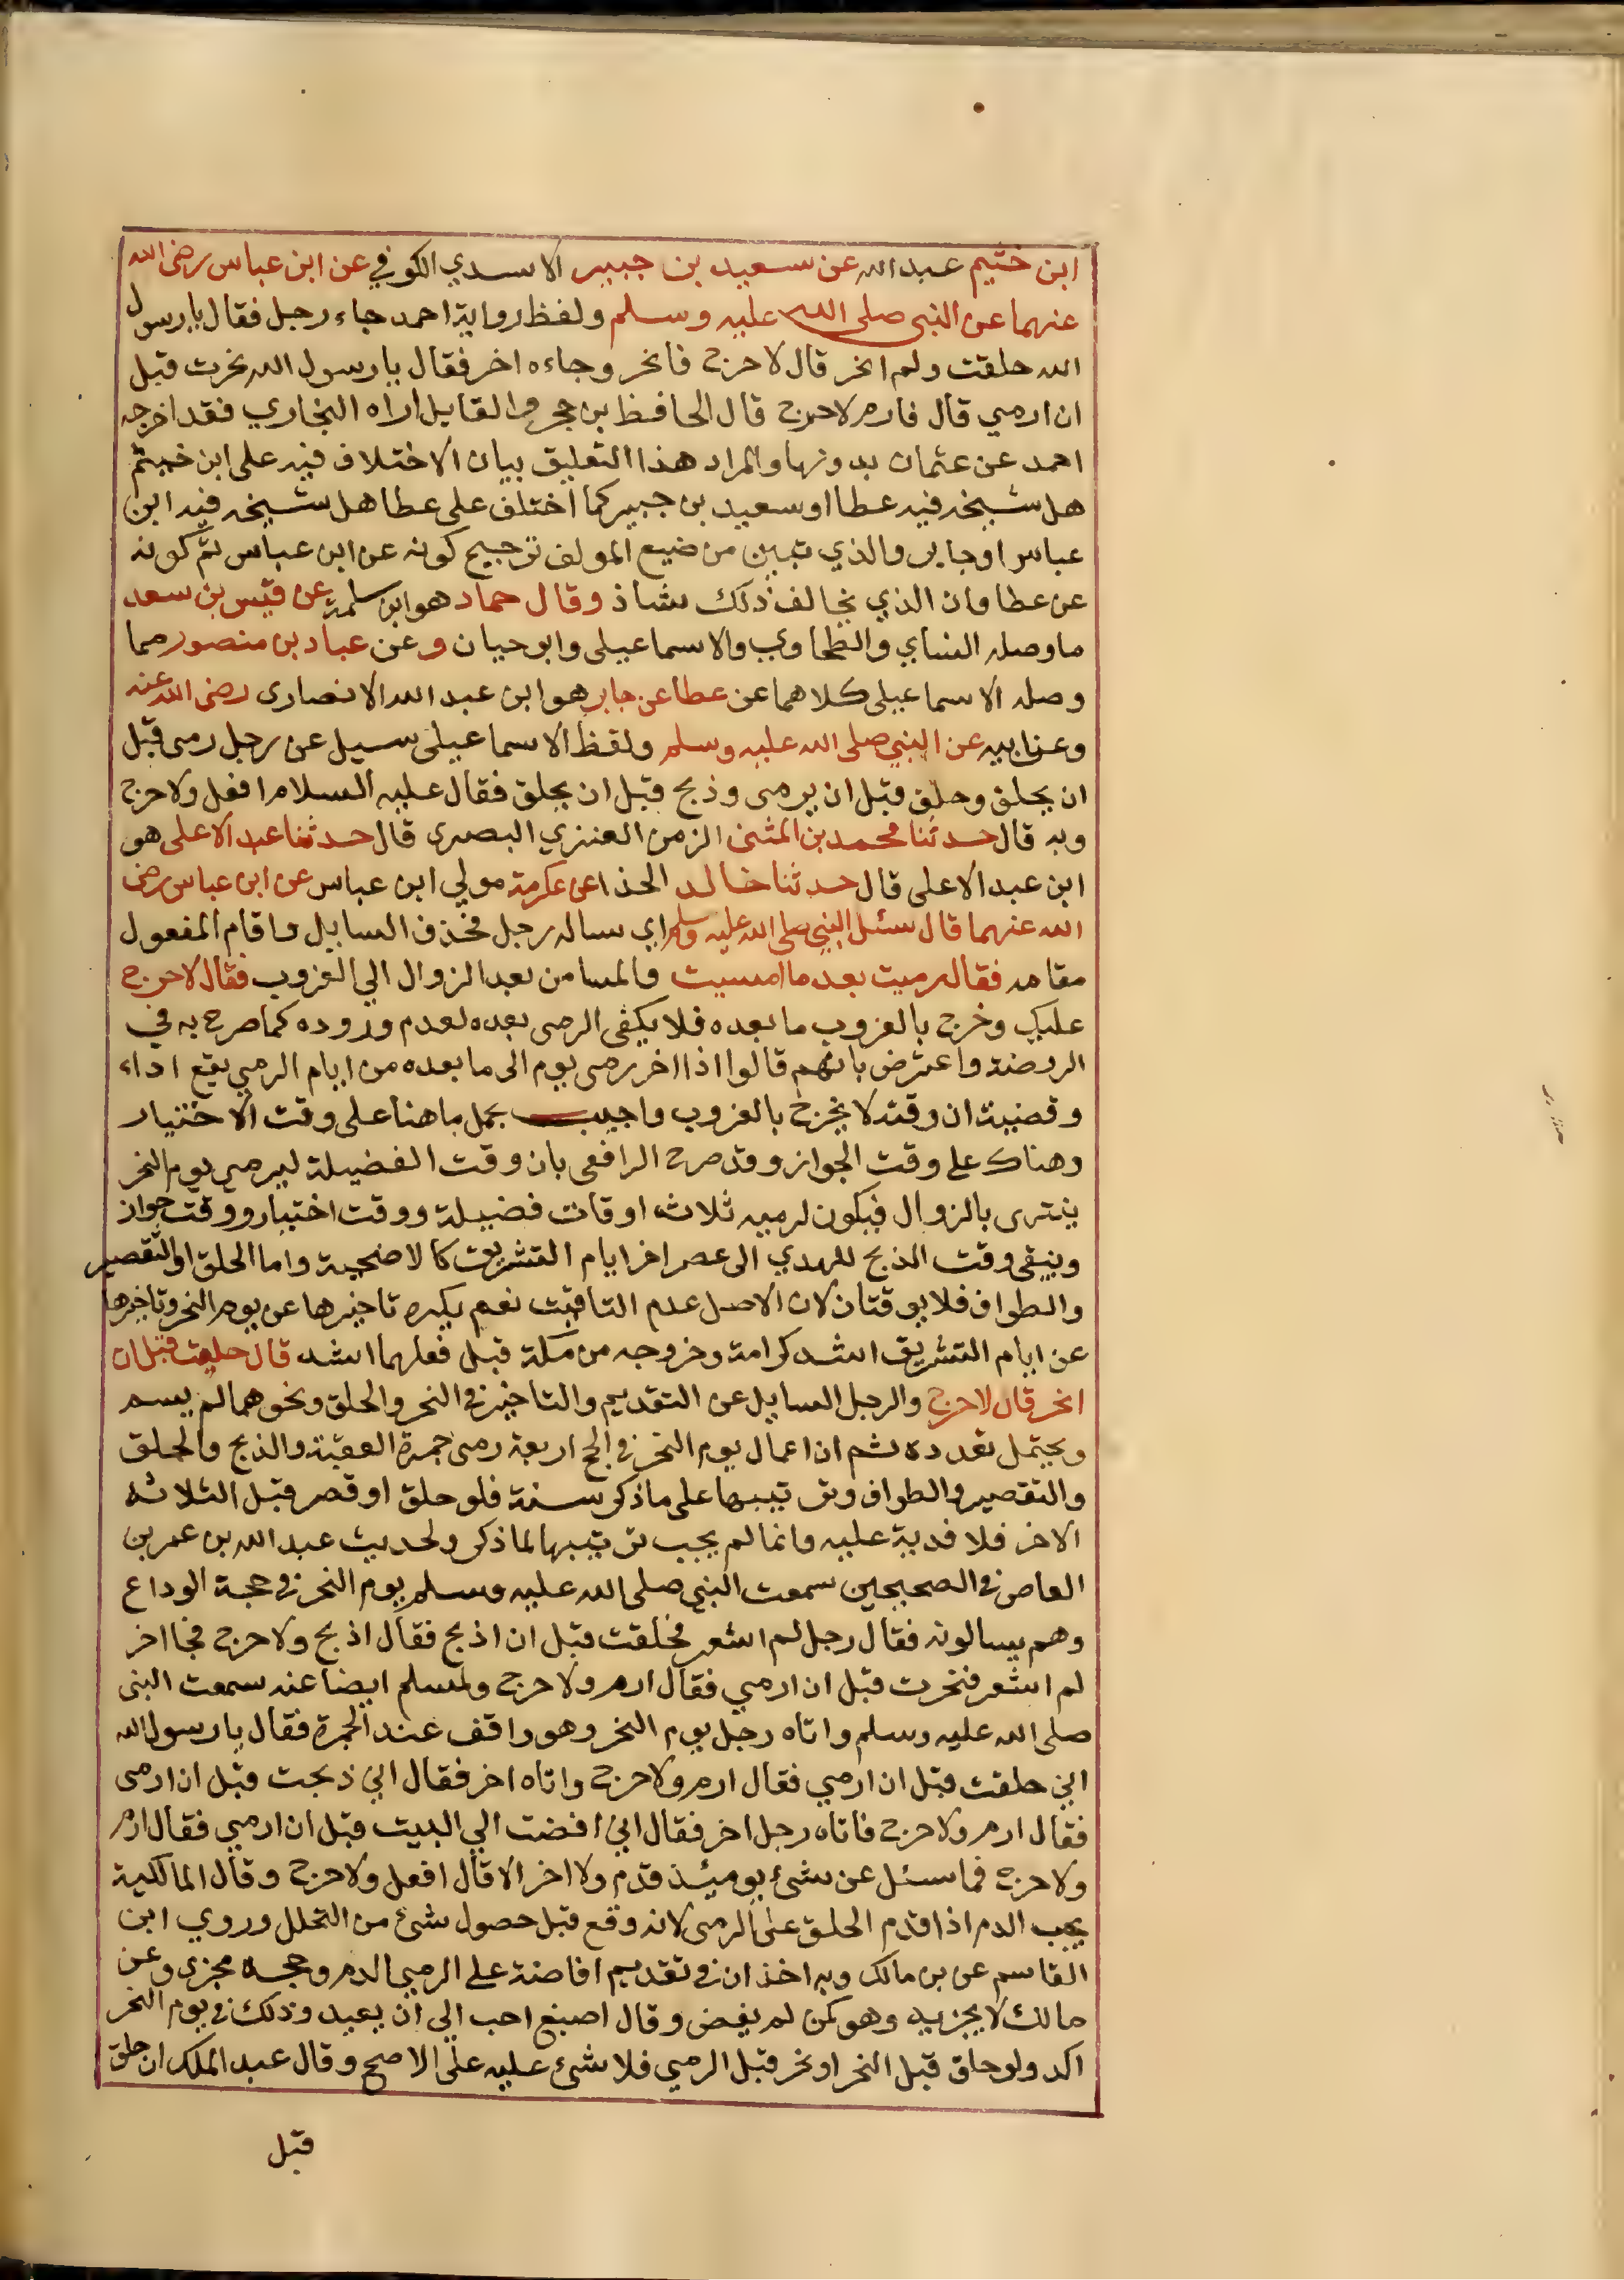 ابن خثيم عبد الله عن سعيد بن جبير الاسدي الكوفي عن ابن عباس رضى الله
عنهما عن النبى صلى الله عليه وسلم ولفظ رواية احمد جاء رجل فقال يا رسول
الله حلقت ولم انحر قال لا حرج فانحر وجاءه اخر فقال يا رسول الله نحرت قبل
ان ارمي قال فارم لا حرج قال الحافظ بن حجر والقايل اراه البخاري فقد اخرجه
احمد عن عثمان بدونها والمراد هذا التعليق بيان الاختلاف فيه على ابن خيثم
هل شيخه فيه عطا او سعيد بن جبير كما اختلف على عطا هل شيخه فيه ابن
عباس او جابر والذي تبين من ضيع المولف ترجيح كونه عن ابن عباس ثم كونه
عن عطا وان الذي يخالف ذلك شاذ وقال حماد هو ابن سلمة عن قيس بن سعد
ما وصله النساي والطحاوي والاسماعيلى وابو حيان وعن عباد بن منصور مما
وصله الاسماعيلى كلاهما عن عطا عن جابر هو ابن عبد الله الانصارى رضى الله عنه
وعن ابيه عن النبي صلى الله عليه وسلم ولفظ الاسماعيلى سيل عن رجل رمى قبل
ان يحلق وحلق قبل ان يرمى وذبح قبل ان يحلق فقال عليه السلام افعل ولا حرج
وبه قال حدثنا محمد بن المثنى الزمن العنزي البصرى قال حدثنا عبد الاعلى هو
ابن عبد الاعلى قال حدثنا خالد الحذا عن عكرمة مولي ابن عباس عن ابن عباس رضى
الله عنهما قال سئل النبي صلى الله عليه وسلم اي ساله رجل فحذف السايل واقام المفعول
مقامه فقال رميت بعد ما امسيت والمسا من بعد الزوال الي الغروب فقال لا حرج
عليك وخرج بالغروب ما بعده فلا يكفى الرمى بعده لعدم وروده كما صرح به في
الروضة واعترض بانهم قالوا اذا اخر رمى يوم الى ما بعده من ايام الرمي يقع اداء
وقضيته ان وقته لا يخرج بالغروب واجيب بحمل ما هنا على وقت الاختيار
وهناك على وقت الجواز وقد صرح الرافعى بان وقت الفضيلة ليرمي يوم النحر
ينتهى بالزوال فيكون لرميه ثلاث اوقات فضيلة ووقت اختيار ووقت جواز
ويبقى وقت الذبح للهدي الى عصر اخر ايام التشريق كالاضحية واما الحلق او التقصير
والطواف فلا يوقتان لان الاصل عدم التاقيت نعم يكره تاخيرها عن يوم النحر وتاخيرها
عن ايام التشريق اشد كرامة وخروجه من مكة قبل فعلهما اشد قال حلقت قبل ان
انحر قال لا حرج والرجل السايل عن التقديم والتاخير في النحر والحلق ونحوهما لم يسم
ويحتمل تعدده ثم ان اعمال يوم النحر في الحج اربعة رمى جمرة العقبة والذبح والحلق
والتقصير والطواف وترتيبها على ما ذكر سنة فلو حلق او قصر قبل الثلاثه
الاخر فلا فدية عليه وانما لم يجب ترتيبها لما ذكر ولحديث عبد الله بن عمر بن
العاص في الصحيحين سمعت النبي صلى الله عليه وسلم يوم النحر في حجة الوداع
وهم يسالونه فقال رجل لم اشعر فحلقت قبل ان اذبح فقال اذبح ولا حرج فجا اخر
لم اشعر فنحرت قبل ان ارمي فقال ارم ولا حرج ولمسلم ايضا عنه سمعت النبى
صلى الله عليه وسلم واتاه رجل يوم النحر وهو واقف عند الجمرة فقال يا رسول الله
اني حلقت قبل ان ارمي فقال ارم ولا حرج واتاه اخر فقال اني ذبحت قبل ان ارمى
فقال ارم ولا حرج فاتاه رجل اخر فقال اني افضت الي البيت قبل ان ارمي فقال ارم
ولا حرج فما سئل عن شئ يوميئذ قدم ولا اخر الا قال افعل ولا حرج وقال المالكية
يجب الدم اذا قدم الحلق على الرمى لانه وقع قبل حصول شئ من التحلل وروي ابن
القاسم عن بن مالك وبه اخذ ان في تقديم افاضة على الرمي الدم وحجه مجزى وعن
مالك لا يجزيه وهو كمن لم يفض وقال اصبغ احب الى ان يعيد وذلك في يوم النحر
اكد ولو حلق قبل النحر او نحر قبل الرمي فلا شئ عليه على الاصح وقال عبد الملك ان حلق
قبل